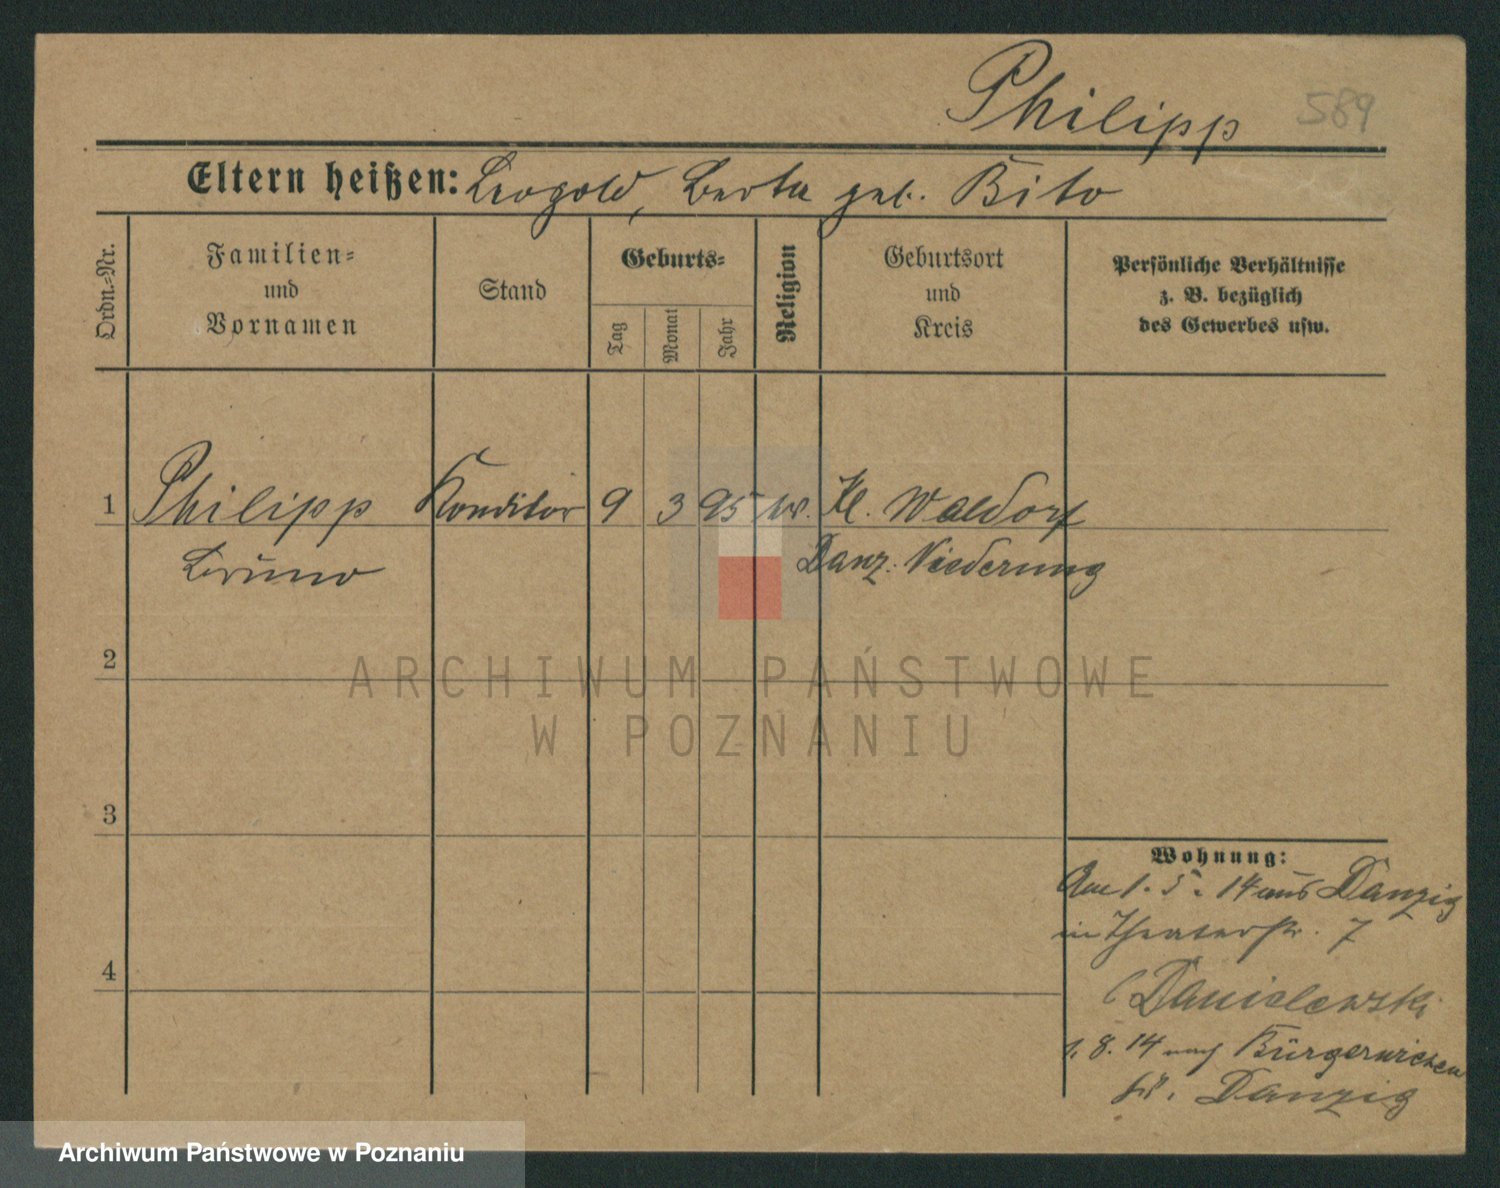 Philipp 589
Eltern heißen: Leopold, Berta geb. Bito
Ordn.=Nr.
Familien=
und
Vornamen
Stand
Geburts=
Tag
Monat
Jahr
Religion
Geburtsort
und
Kreis
Persönliche Verhältnisse
z. B. bezüglich
des Gewerbes usw.
1 Philipp Konditor 9 3 95 ev. Kl. Waldorf
Bruno Danz. Niederung
2
3
4
Wohnung:
Am 1. 5. 14 aus Danzig
in Theaterstr. 7
Danielewski
1. 8. 14 nach Bürgerwiesen
Kr. Danzig
ARCHIWUM PAŃSTWOWE
W POZNANIU
Archiwum Państwowe w Poznaniu